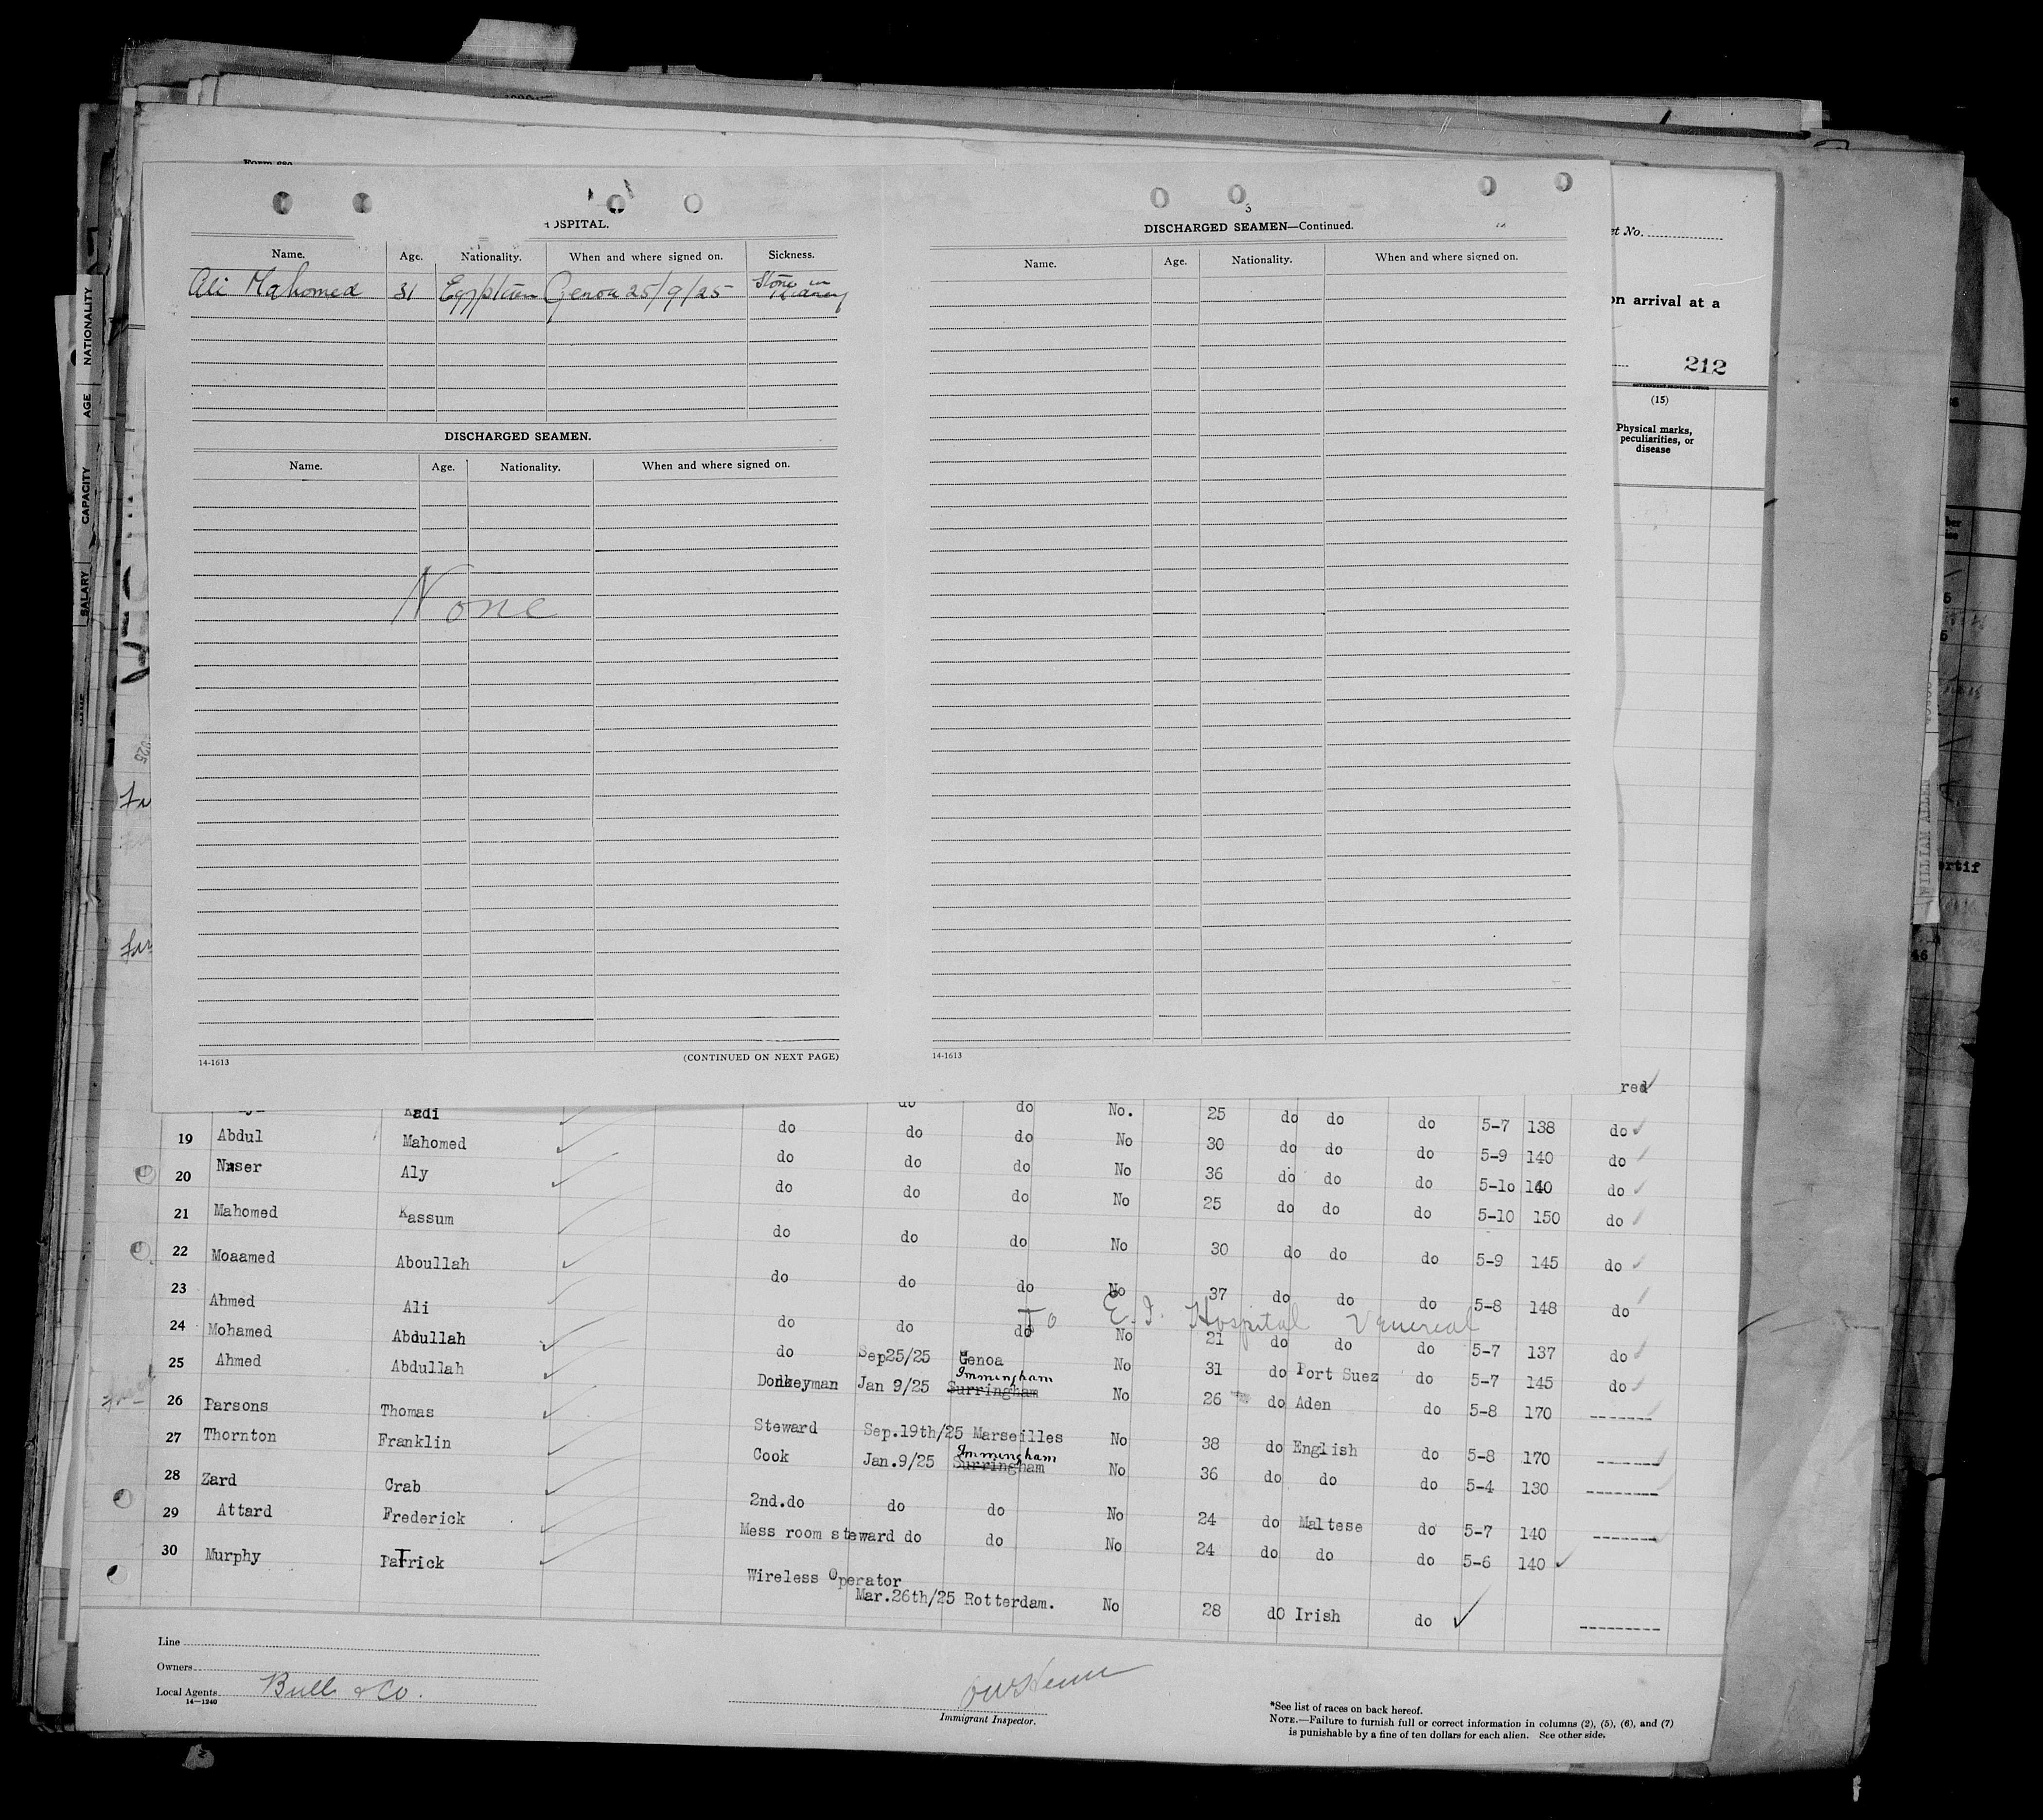 HOSPITAL.
Name. Age. Nationality. When and where signed on. Sickness.
Ali Mahomed 31 Egyptian Genoa 25/9/25 Stone in Kidney
DISCHARGED SEAMEN.
Name. Age. Nationality. When and where signed on.
None
14-1613 (CONTINUED ON NEXT PAGE)
DISCHARGED SEAMEN—Continued.
Name. Age. Nationality. When and where signed on.
14-1613
et No.
on arrival at a
212
(15)
Physical marks, peculiarities, or disease
NATIONALITY
AGE
CAPACITY
SALARY
WILLIAM ALLEN
ertif
red
Kadi do do No. 25 do do do 5-7 138 do
19 Abdul Mahomed do do do No 30 do do do 5-9 140 do
20 Naser Aly do do do No 36 do do do 5-10 140 do
21 Mahomed Kassum do do do No 25 do do do 5-10 150 do
22 Moaamed Aboullah do do do No 30 do do do 5-9 145 do
23 Ahmed Ali do do do No 37 do do do 5-8 148 do
To E. I. Hospital Venereal
24 Mohamed Abdullah do do do No 21 do do do 5-7 137 do
25 Ahmed Abdullah do Sep25/25 Genoa No 31 do Port Suez do 5-7 145 do
Immingham
Donkeyman Jan 9/25 Surringham No 26 do Aden do 5-8 170 -------
26 Parsons Thomas Steward Sep.19th/25 Marseilles No 38 do English do 5-8 170 -------
Immingham
27 Thornton Franklin Cook Jan.9/25 Surringham No 36 do do do 5-4 130 --------
28 Zard Crab 2nd.do do do No 24 do Maltese do 5-7 140 --------
29 Attard Frederick Mess room steward do do No 24 do do do 5-6 140
30 Murphy PaTrick Wireless Operator
Mar.26th/25 Rotterdam. No 28 do Irish do ---------
Line
Owners
Local Agents Bull & Co.
14-1240
Immigrant Inspector.
*See list of races on back hereof.
NOTE.—Failure to furnish full or correct information in columns (2), (5), (6), and (7)
is punishable by a fine of ten dollars for each alien. See other side.